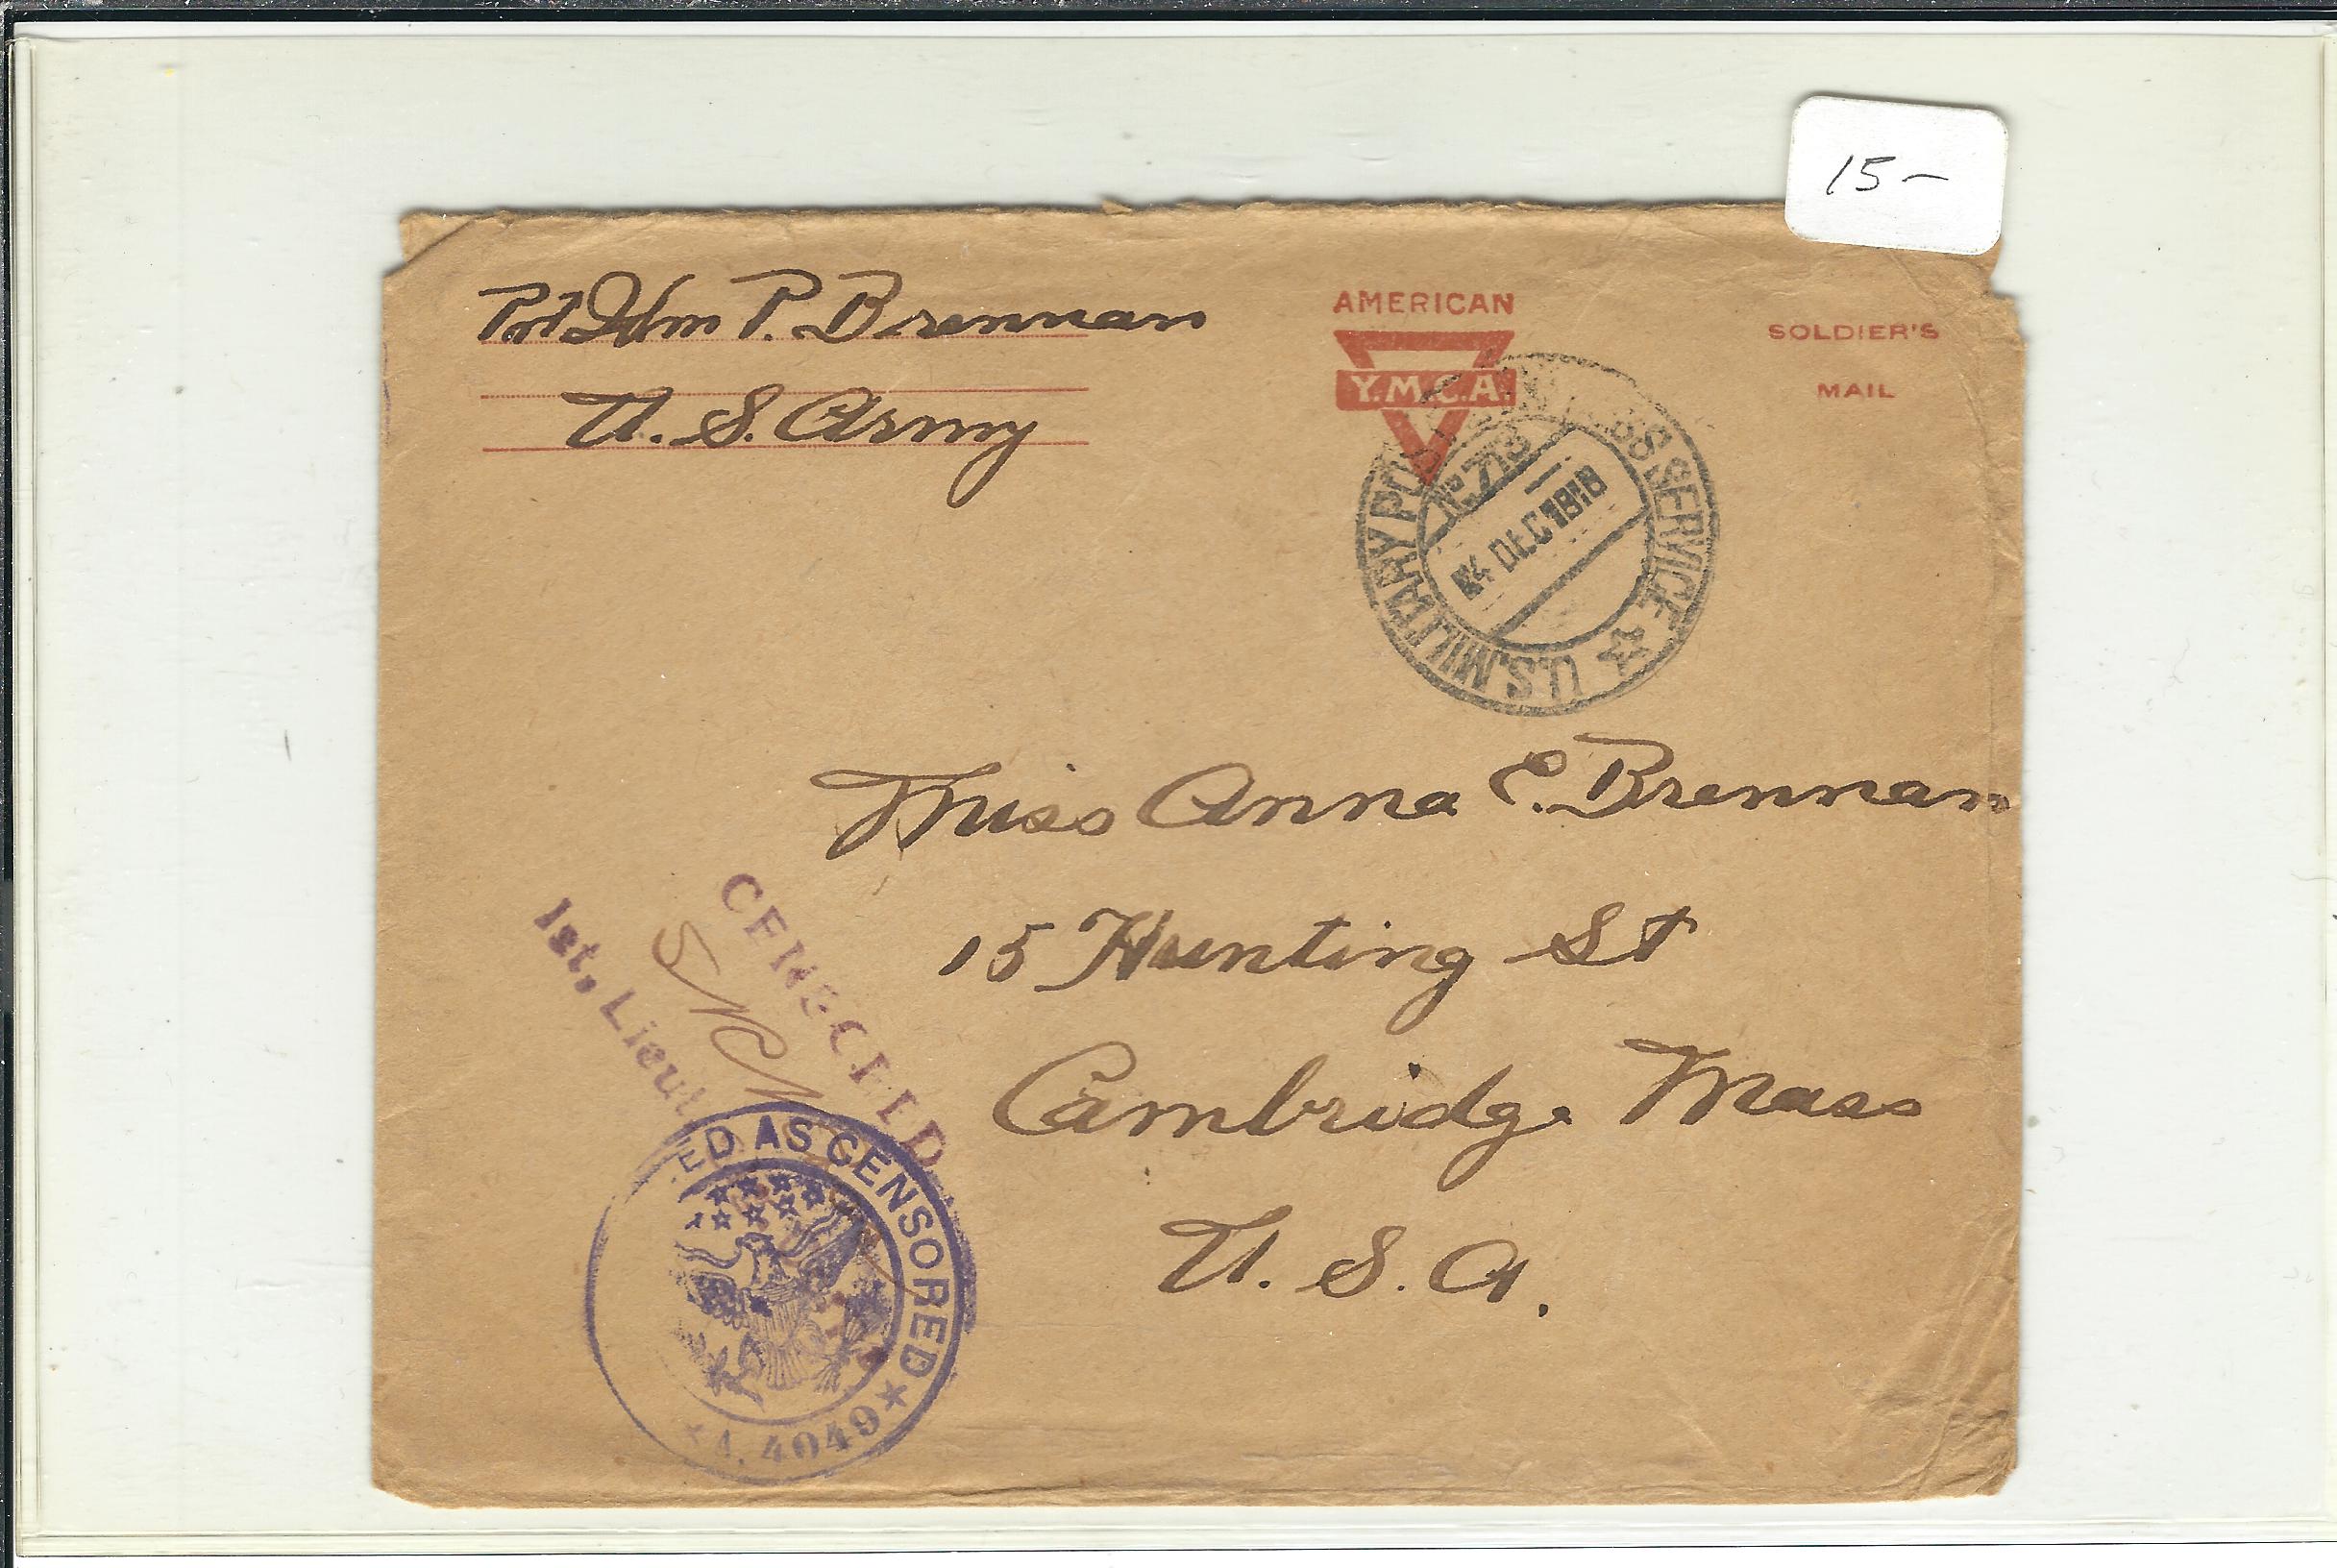 15-
Pvt Wm P. Brennan
U. S. Army
AMERICAN
Y.M.C.A.
SOLDIER'S
MAIL
U.S. MILITARY POSTAL EXPRESS SERVICE
713
4 DEC 1918
Miss Anna E. Brennan
15 Hunting St
Cambridge Mass
U. S. A.
CENSORED
1st, Lieut
ED AS CENSORED
A. 4049